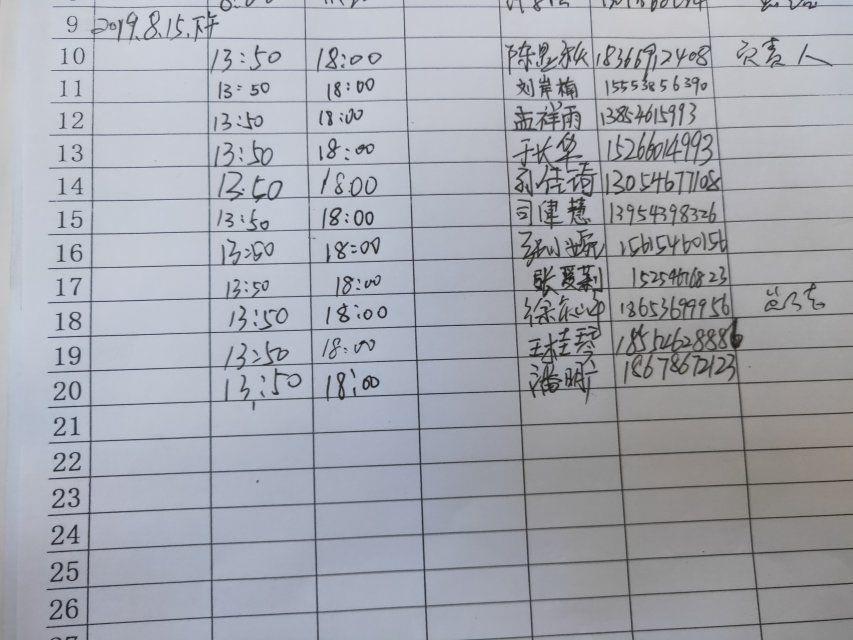 9 2019.8.15.下午
10 13:50 18:00 18366912408 负责人
11 13:50 18:00 刘岸楠 15553856390
12 13:50 18:00 孟祥雨 13854615993
13 13:50 18:00 于长华 15266014993
14 13:50 18:00 13054677108
15 13:50 18:00 司健慧 13954398326
16 13:50 18:00 15615460156
17 13:50 18:00 张爱莉 15254676823
18 13:50 18:00 18653699956
19 13:50 18:00 王桂琴 18554628886
20 13:50 18:00 潘明 18678672123
21
22
23
24
25
26